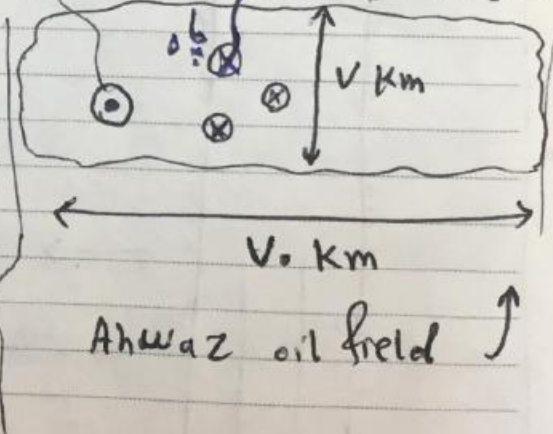 ۷ Km
۷۰ Km
Ahwaz oil field